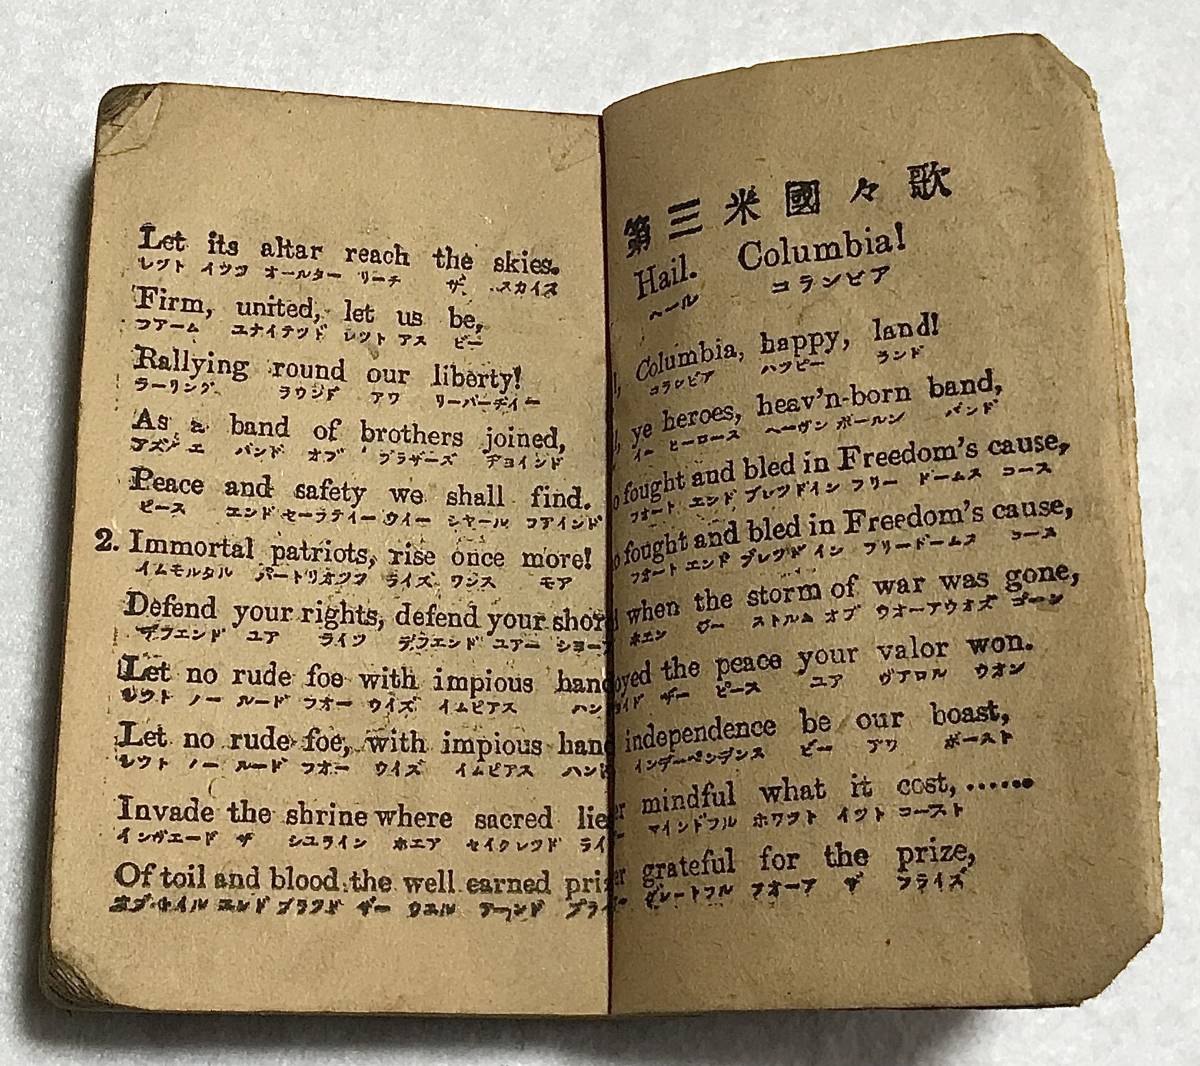 第三米國々歌
Hail. Columbia!
ヘール コランビア
Columbia, happy, land!
コランビア ハツピー ランド
ye heroes, heav'n-born band,
イー ヒーロース ヘーヴン ボールン バンド
fought and bled in Freedom's cause,
フオート エンド ブレツドイン フリー ドームス コース
fought and bled in Freedom's cause,
フオート エンド ブレツド イン フリードームス コース
when the storm of war was gone,
ホエン ザー ストルム オブ ウオーアウオズ ゴーン
oyed the peace your valor won.
ヨイド ザー ピース ユア ヴアロル ウオン
independence be our boast,
インデーペンデンス ビー アワ ボースト
er mindful what it cost,......
マインドフル ホワツト イツト コースト
er grateful for the prize,
グレートフル フオーア ザ プライズ
Let its altar reach the skies.
レツト イツツ オールター リーチ ザ スカイス
Firm, united, let us be,
フアーム ユナイテツド レツト アス ビー
Rallying round our liberty!
ラーリング ラウンド アワ リーバーテイー
As a band of brothers joined,
アズ エ バンド オブ ブラザーズ ヂョインド
Peace and safety we shall find.
ピース エンド セーフテイー ウイー シヤール フアインド
2. Immortal patriots, rise once more!
イムモルタル パートリオツツ ライズ ワンス モア
Defend your rights, defend your shor
デフエンド ユア ライツ デフエンド ユアー ショー
Let no rude foe with impious hand
レツト ノー ルード フオー ウイズ イムピアス ハン
Let no rude foe, with impious hand
レツト ノー ルード フオー ウイズ イムピアス ハンド
Invade the shrine where sacred lie
インヴエード ザ シユライン ホエア セイクレツド ライ
Of toil and blood the well earned priz
オブ トイル エンド ブラツド ザー ウエル アーンド プライ